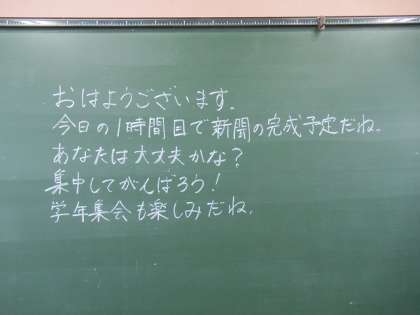 おはようございます。
今日の1時間目で新聞の完成予定だね。
あなたは大丈夫かな?
集中してがんばろう!
学年集会も楽しみだね。